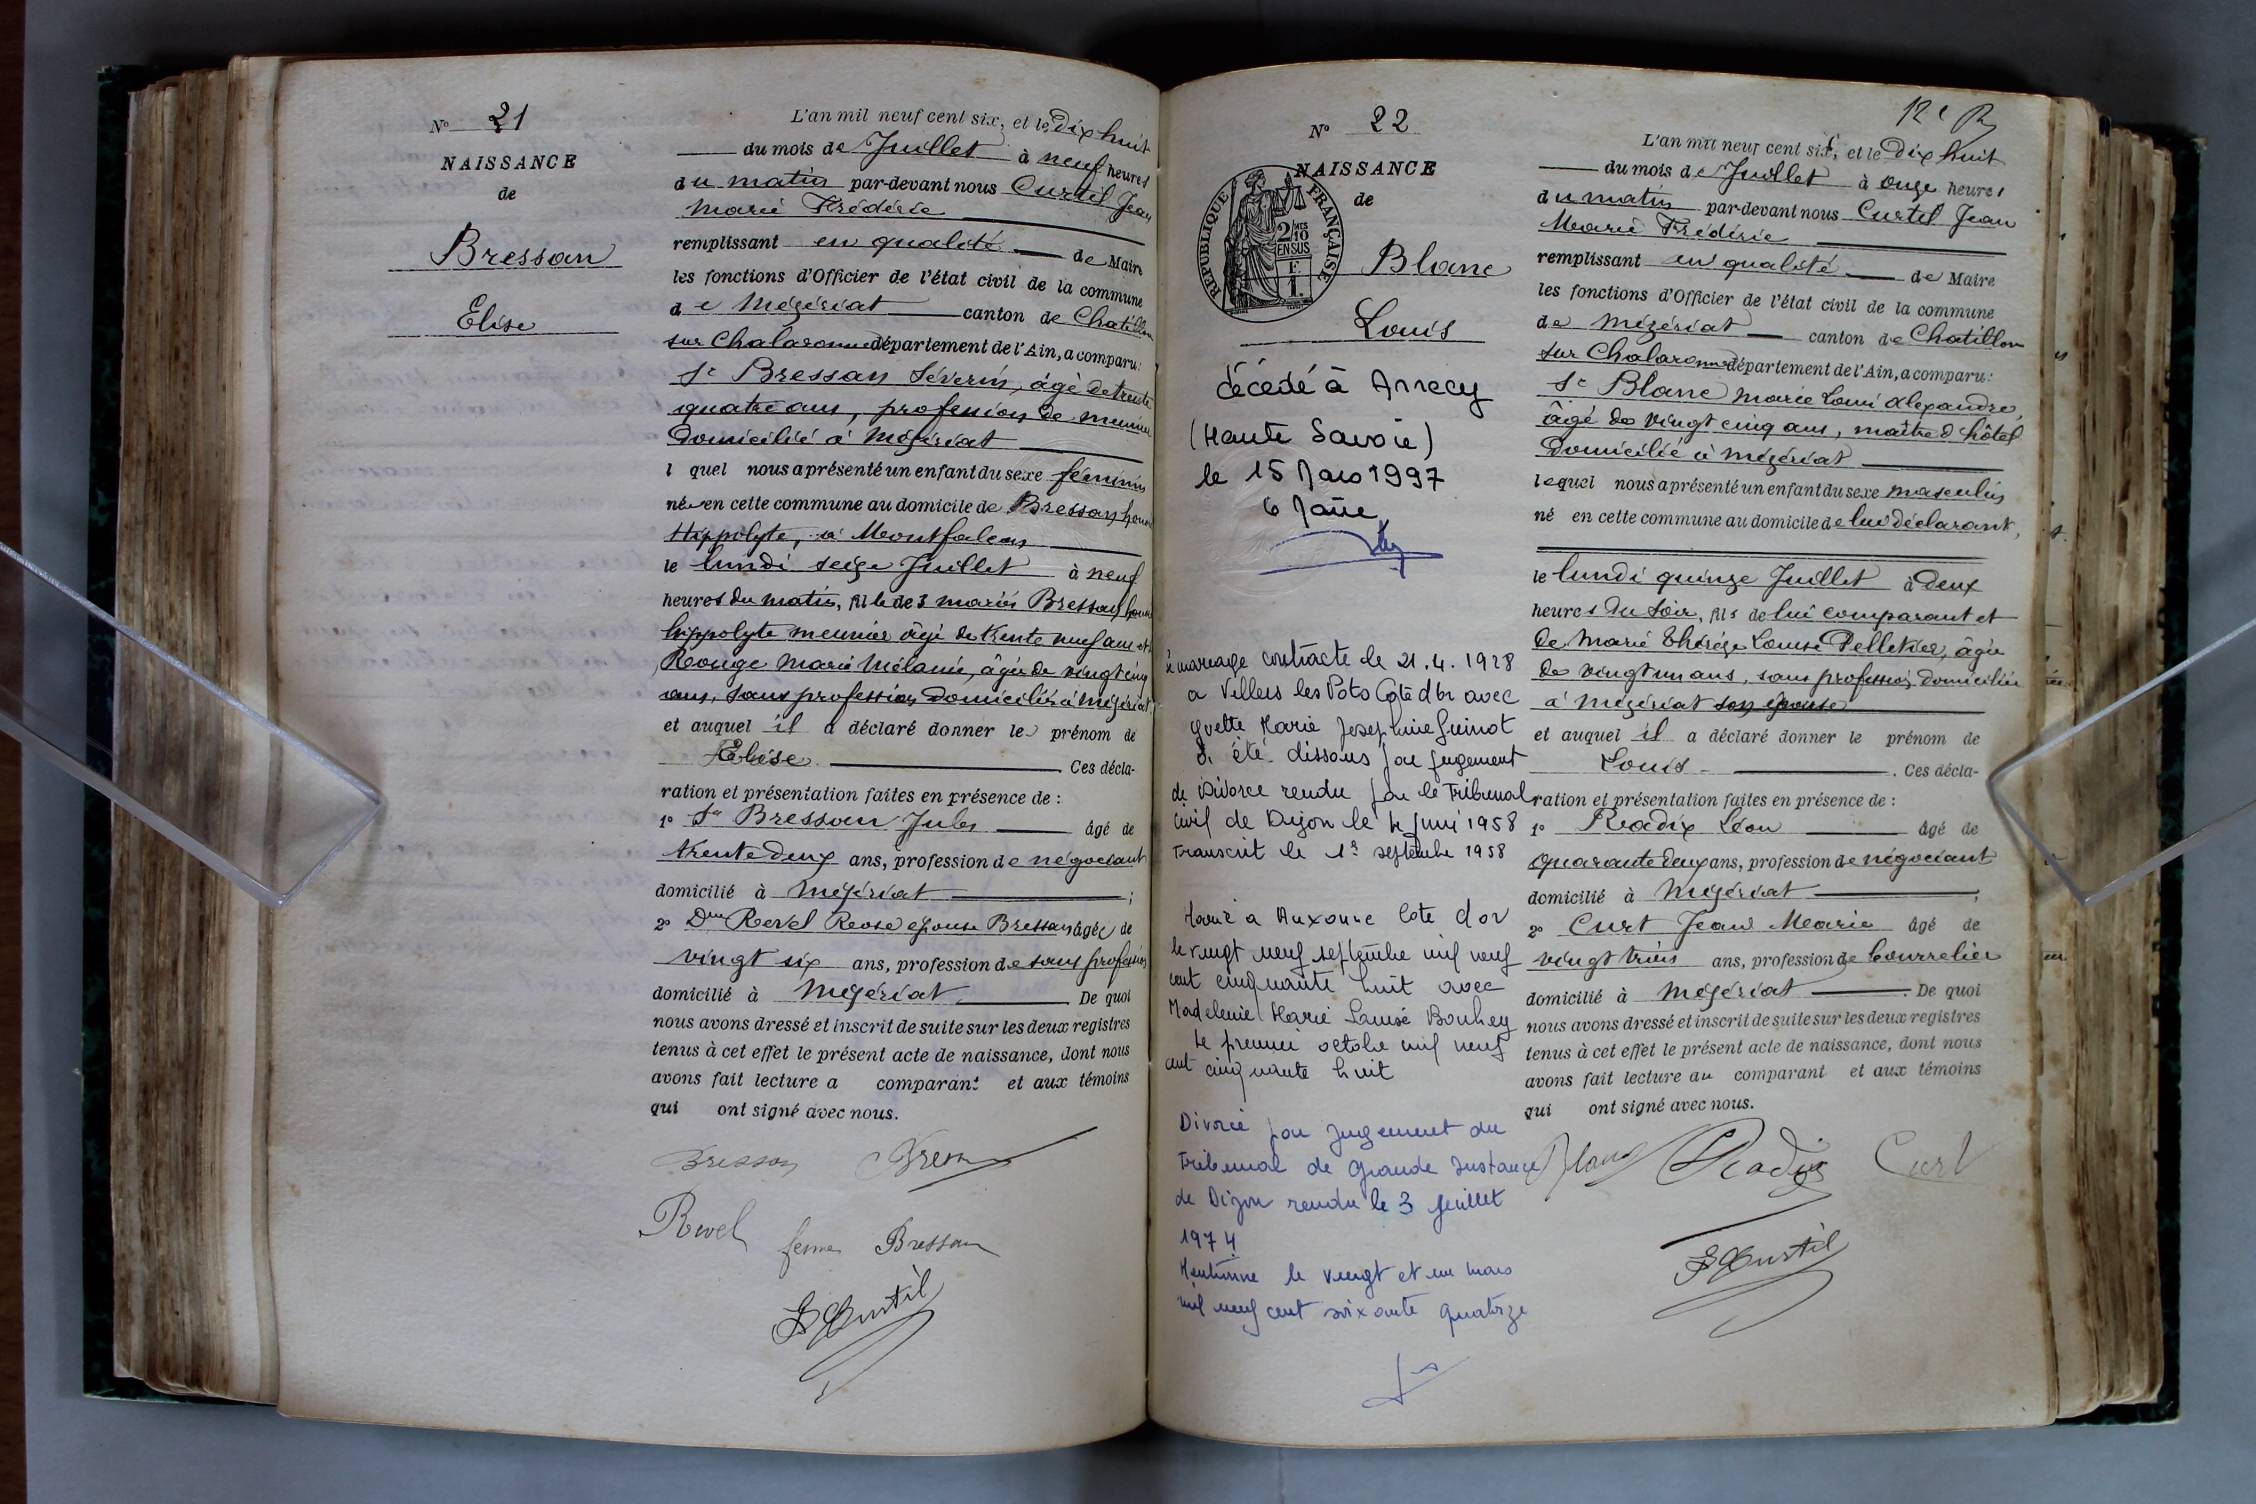 N° 21
NAISSANCE
de
Bressan
Elise
L'an mil neuf cent six, et le Dix huit
du mois de Juillet à neuf heures
du matin par-devant nous Curtil Jean
Marie Frédéric
remplissant en qualité de Maire
les fonctions d'Officier de l'état civil de la commune
de Mézériat canton de Chatillon
sur Chalaronne département de l'Ain, a comparu:
Sr Bressan Séverin, âgé de trente
quatre ans, profession de meunier
domicilié à Mézériat
lequel nous a présenté un enfant du sexe féminin
née en cette commune au domicile de Bressan
Hippolyte, à Montfalcon
le lundi seize Juillet à neuf
heures du matin, fille de 3 mariés Bressan
hippolyte meunier âgé de trente neuf ans et
Rouge Marie Mélanie, âgée de vingt cinq
ans, sans profession domiciliés à Mézériat
et auquel il a déclaré donner le prénom de
Elise. Ces décla-
ration et présentation faites en présence de :
1° Sr Bressan Jules âgé de
trente deux ans, profession de négociant
domicilié à Mézériat ;
2° Dme Revel Rose épouse Bressan âgée de
vingt six ans, profession de sans profession
domicilié à Mézériat De quoi
nous avons dressé et inscrit de suite sur les deux registres
tenus à cet effet le présent acte de naissance, dont nous
avons fait lecture a comparant et aux témoins
qui ont signé avec nous.
Bressan
Revel femme Bressan
Curtil
N° 22
NAISSANCE
de
REPUBLIQUE FRANÇAISE
2/10 EN SUS
F. 1.
Blanc
Louis
décédé à Annecy
(Haute Savoie)
le 15 Mars 1997
Le Maire
mariage contracté le 21.4.1928
a Villers les Pots Côte d'or avec
Yvette Marie Josephine Guinot
a été dissous par jugement
de Divorce rendu par le Tribunal
civil de Dijon le 4 Juin 1958
Transcrit le 1er septembre 1958
Marié a Auxonne Cote d'or
le vingt neuf septembre mil neuf
cent cinquante huit avec
Madeleine Marie Louise Bouhey
le premier octobre mil neuf
cent cinquante huit
Divorcé par jugement du
Tribunal de Grande Instance
de Dijon rendu le 3 Juillet
1974
Mentionné le vingt et un mars
mil neuf cent soixante quatorze
12e R
L'an mil neuf cent six, et le Dix huit
du mois de Juillet à onze heures
du matin par-devant nous Curtil Jean
Marie Frédéric
remplissant en qualité de Maire
les fonctions d'Officier de l'état civil de la commune
de Mézériat canton de Chatillon
sur Chalaronne département de l'Ain, a comparu:
Sr Blanc Marie Louis Alexandre,
âgé de vingt cinq ans, maître d'hôtel
domicilié à Mézériat
lequel nous a présenté un enfant du sexe masculin
né en cette commune au domicile de lui déclarant,
le lundi quinze Juillet à deux
heures du soir, fils de lui comparant et
de Marie Thérèze Louise Pelletier, âgée
de vingt un ans, sans profession, domiciliée
à Mézériat son épouse
et auquel il a déclaré donner le prénom de
Louis. Ces décla-
ration et présentation faites en présence de :
1° Radix Léon âgé de
quarante deux ans, profession de négociant
domicilié à Mézériat ;
2° Curt Jean Marie âgé de
vingt trois ans, profession de bourrelier
domicilié à Mézériat. De quoi
nous avons dressé et inscrit de suite sur les deux registres
tenus à cet effet le présent acte de naissance, dont nous
avons fait lecture au comparant et aux témoins
qui ont signé avec nous.
Blanc Radix Curt
Curtil